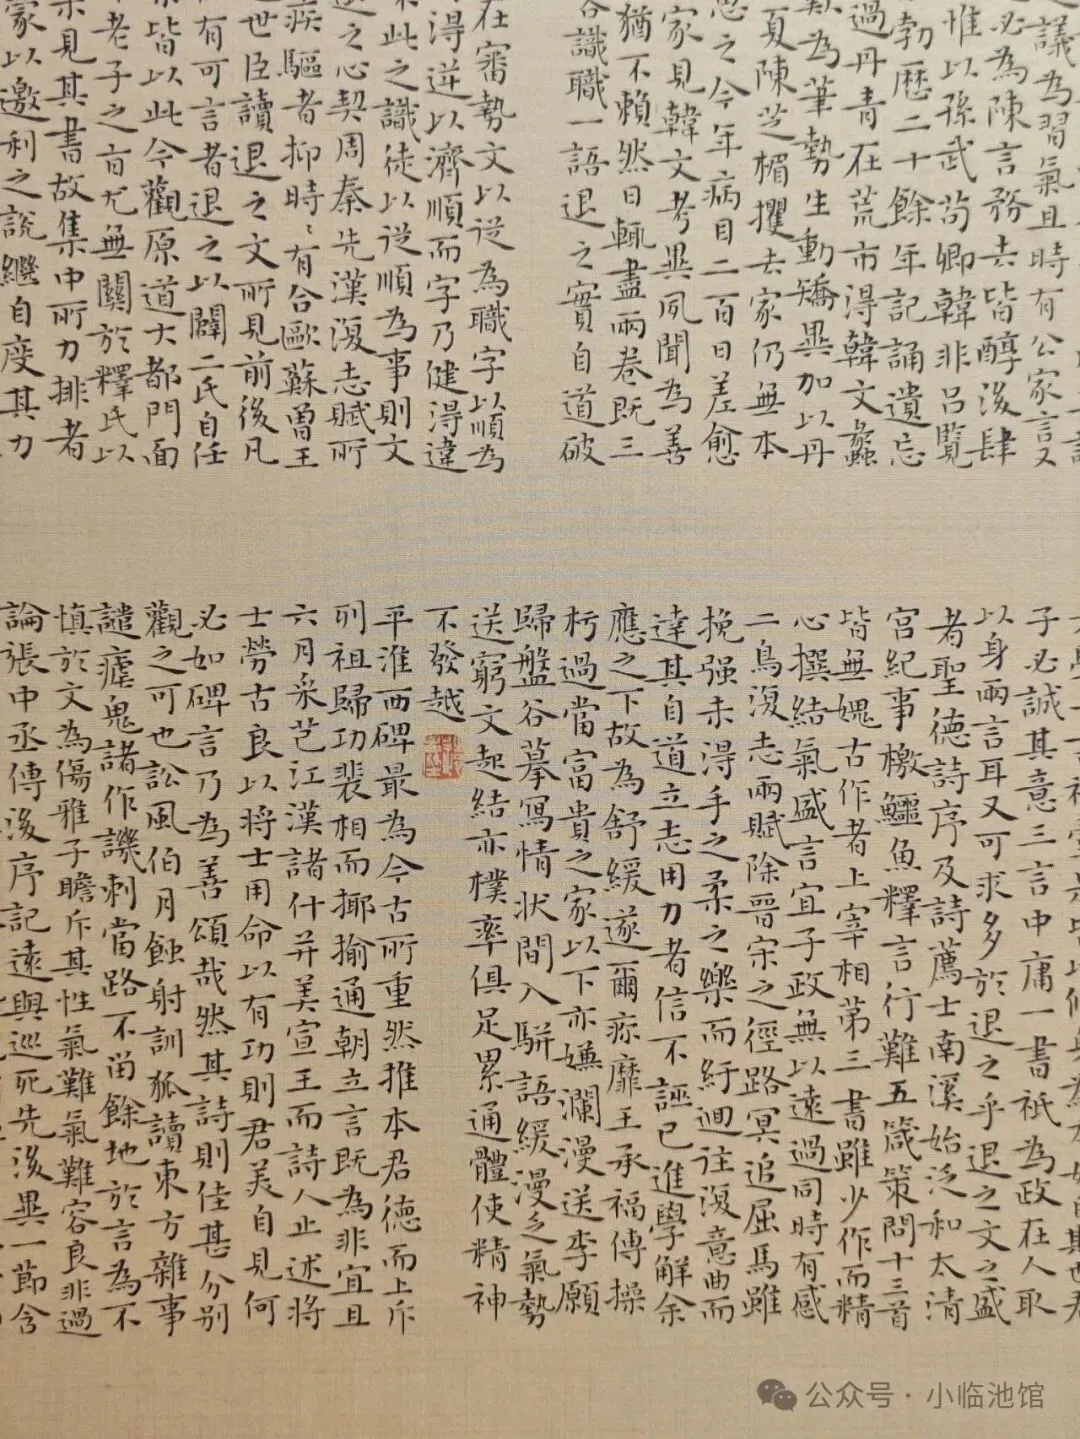 過議為習氣且時有公家言又
必為陳言務去皆醇後肆
惟以孫武荀卿韓非呂覽
勃歷二十餘年記誦遺忘
過丹青在荒市得韓文蠡
歎為筆勢生動矯異加以丹
夏陳芝楣攫去家仍無本
思之今年病目二百日差愈
家見韓文考異夙聞為善
猶不賴然日輒盡兩卷既三
識職一語退之實自道破
在審勢文以從為職字以順為
得逆以濟順而字乃健得違
此之識徒以從順為事則文
之心契周秦先漢復志賦所
疾驅者抑時有合歐蘇曾王
世臣讀退之文所見前後凡
有可言者退之以闢二氏自任
皆以此今觀原道大都門面
老子之旨尤無關於釋氏以
見其書故集中所力排者
家以邀利之說繼自度其力
子必誠其意三言中庸一書祇為政在人取
以身兩言耳又可求多於退之乎退之文之盛
者聖德詩序及詩薦士南溪始泛和太清
宮紀事檄鱷魚釋言行難五箴策問十三首
皆無媿古作者上宰相第三書雖少作而精
心撰結氣盛言宜子政無以遠過同時有感
二鳥復志兩賦除晉宋之徑路冥追屈馬雖
挽强未得手之柔之樂而紆迴往復意曲而
達其自道立志用力者信不誣已進學解余
應之下故為舒緩遂爾痿靡王承福傳操
杇過當富貴之家以下亦嫌瀾漫送李愿
歸盤谷摹寫情狀間入駢語緩漫之氣勢
送窮文起結亦樸率俱足累通體使精神
不發越
平淮西碑最為今古所重然推本君德而上斥
列祖歸功裴相而揶揄通朝立言既為非宜且
六月采芑江漢諸什并美宣王而詩人止述將
士勞古良以將士用命以有功則君美自見何
必如碑言乃為善頌哉然其詩則佳甚分別
觀之可也訟風伯月蝕射訓狐讀東方雜事
譴瘧鬼諸作譏刺當路不留餘地於言為不
慎於文為傷雅子瞻斥其性氣難氣難容良非過
論張中丞傳後序記遠與巡死先後異一節含
公众号·小临池馆